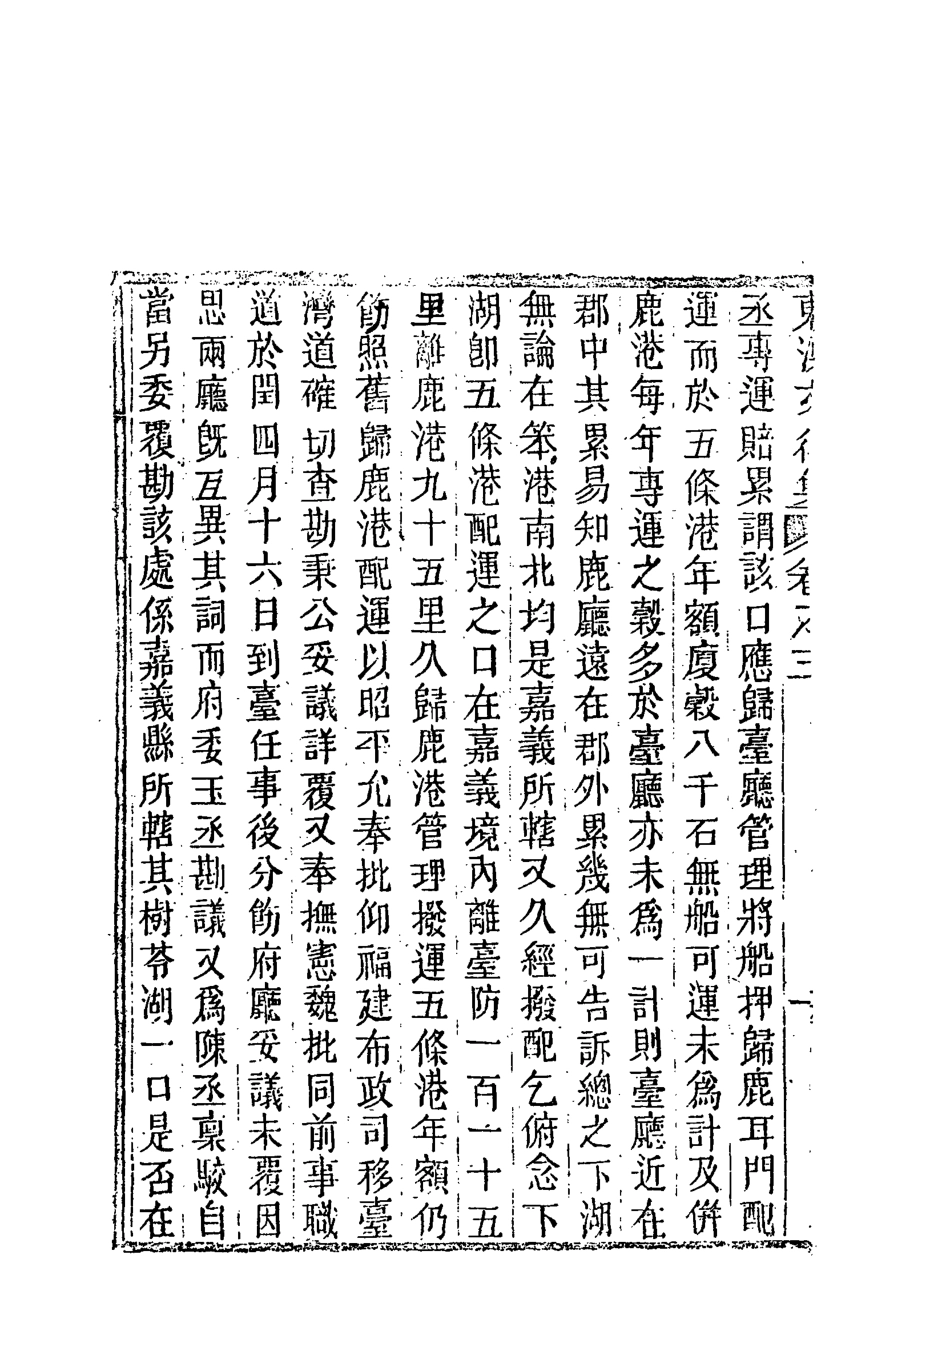 東溟文後集 卷之三
丞專運賠累謂該口應歸臺廳管理將船押歸鹿耳門配
運而於五條港年額廈穀八千石無船可運未爲計及併
鹿港每年專運之穀多於臺廳亦未爲一計則臺廳近在
郡中其累易知鹿廳遠在郡外累幾無可告訴總之下湖
無論在笨港南北均是嘉義所轄又久經撥配乞俯念下
湖卽五條港配運之口在嘉義境內離臺防一百一十五
里離鹿港九十五里久歸鹿港管理撥運五條港年額仍
飭照舊歸鹿港配運以昭平允奉批仰福建布政司移臺
灣道確切查勘秉公妥議詳覆又奉撫憲魏批同前事職
道於閏四月十六日到臺任事後分飭府廳妥議未覆因
思兩廳旣互異其詞而府委玉丞勘議又爲陳丞稟駁自
當另委覆勘該處係嘉義縣所轄其樹苓湖一口是否在